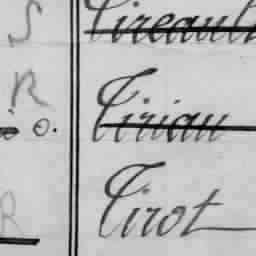 S Tireault
R Tirian
o.
R Tirot